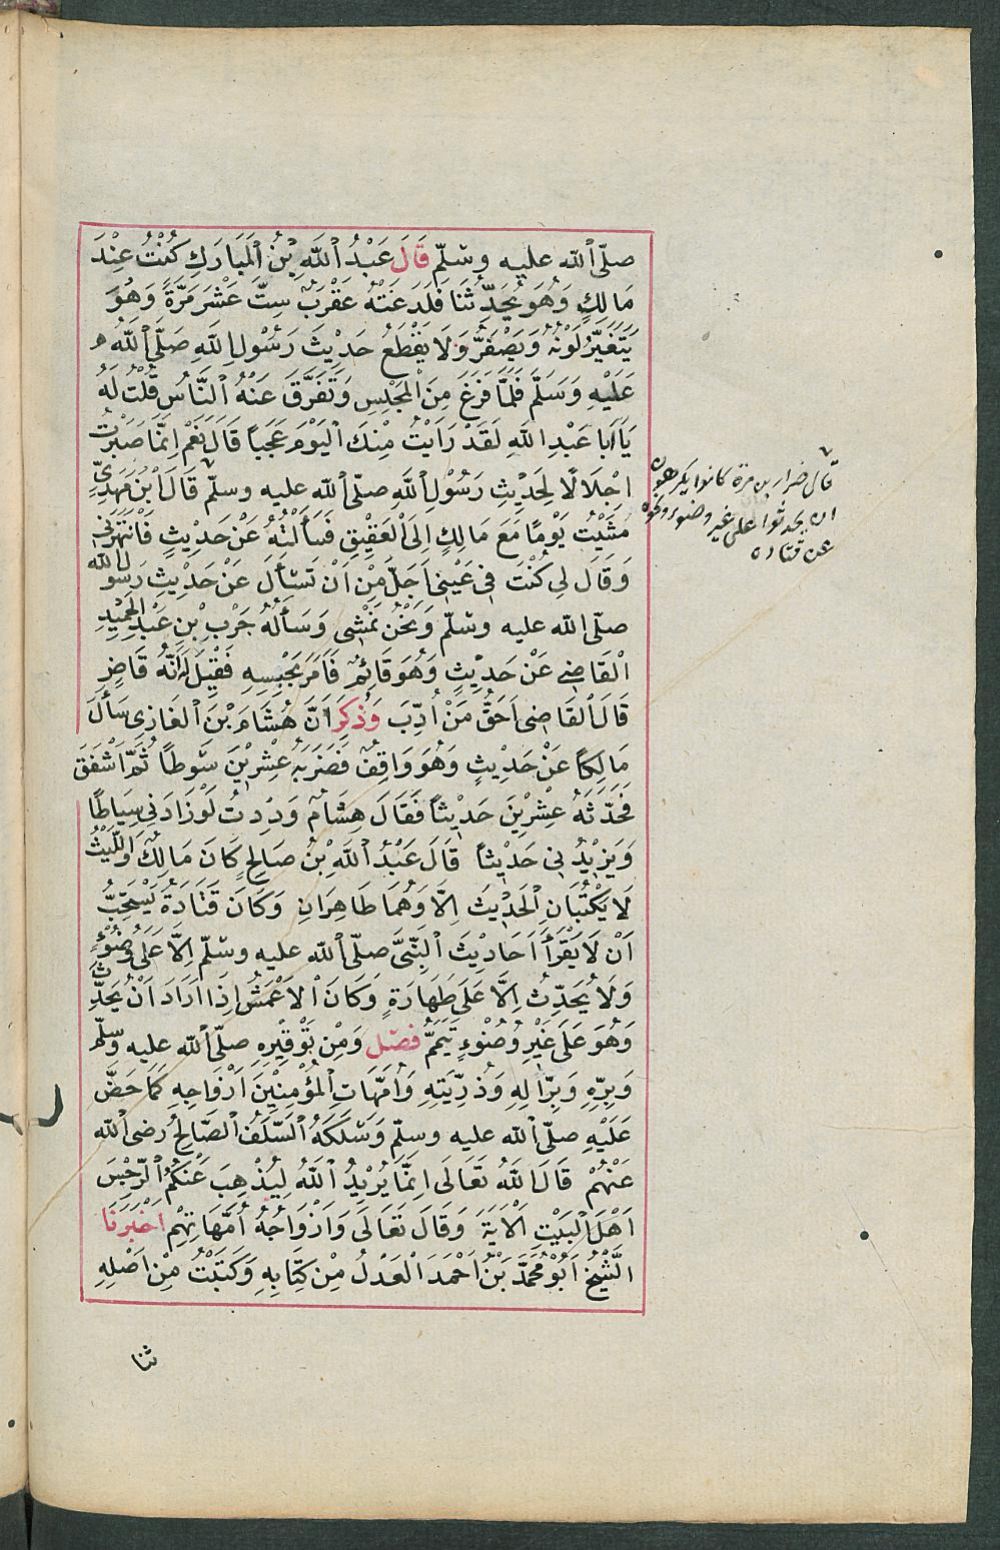 صلّى الله عليه وسلّم قَالَ عَبْدُ اللهِ بْنُ الْمُبَارَكِ كُنْتُ عِنْدَ
مَالِكٍ وَهُوَ يُحَدِّثُنَا فَلَدَغَتْهُ عَقْرَبٌ سِتَّ عَشْرَ مَرَّةً وَهُوَ
يَتَغَيَّرُ لَوْنُهُ وَيَصْفَرُّ وَلَا يَقْطَعُ حَدِيثَ رَسُولِ اللهِ صَلَّى اللهُ
عَلَيْهِ وَسَلَّمَ فَلَمَّا فَرَغَ مِنَ الْمَجْلِسِ وَتَفَرَّقَ عَنْهُ النَّاسُ قُلْتُ لَهُ
يَا اَبَا عَبْدِ اللهِ لَقَدْ رَاَيْتُ مِنْكَ الْيَوْمَ عَجَبًا قَالَ نَعَمْ اِنَّمَا صَبَرْتُ
اِجْلَالًا لِحَدِيْثِ رَسُوْلِ اللهِ صلّى الله عليه وسلّم قَالَ ابْنُ مَهْدِيٍّ
مَشَيْتُ يَوْمًا مَعَ مَالِكٍ اِلَى الْعَقِيْقِ فَسَأَلْتُهُ عَنْ حَدِيْثٍ فَانْتَهَرَنِي
وَقَالَ لِي كُنْتَ فِي عَيْنِي اَجَلَّ مِنْ اَنْ تَسْأَلَ عَنْ حَدِيْثِ رَسُولِ الله
صلّى الله عليه وسلّم وَنَحْنُ نَمْشِي وَسَأَلَهُ جَرِيْرُ بْنُ عَبْدِ الْحَمِيْدِ
الْقَاضِي عَنْ حَدِيْثٍ وَهُوَ قَائِمٌ فَاَمَرَ بِحَبْسِهِ فَقِيْلَ لَهُ اِنَّهُ قَاضٍ
قَالَ الْقَاضِي اَحَقُّ مَنْ اُدِّبَ وَذُكِرَ اَنَّ هِشَامَ بْنَ الْغَازِي سَأَلَ
مَالِكًا عَنْ حَدِيْثٍ وَهُوَ وَاقِفٌ فَضَرَبَهُ عِشْرِيْنَ سَوْطًا ثُمَّ اَشْفَقَ
فَحَدَّثَهُ عِشْرِيْنَ حَدِيْثًا فَقَالَ هِشَامٌ وَدِدْتُ لَوْ زَادَنِي سِيَاطًا
وَيَزِيْدُنِي حَدِيْثًا قَالَ عَبْدُ اللهِ بْنُ صَالِحٍ كَانَ مَالِكٌ وَاللَّيْثُ
لَا يَكْتُبَانِ الْحَدِيْثَ اِلَّا وَهُمَا طَاهِرَانِ وَكَانَ قَتَادَةُ يَسْتَحِبُّ
اَنْ لَا يَقْرَأَ اَحَادِيْثَ النَّبِيِّ صلّى الله عليه وسلّم اِلَّا عَلَى وُضُوْءٍ
وَلَا يُحَدِّثُ اِلَّا عَلَى طَهَارَةٍ وَكَانَ الْاَعْمَشُ اِذَا اَرَادَ اَنْ يُحَدِّثَ
وَهُوَ عَلَى غَيْرِ وُضُوْءٍ تَيَمَّمَ فصل وَمِنْ تَوْقِيْرِهِ صلّى الله عليه وسلّم
وَبِرِّهِ وَبِرِّ اٰلِهِ وَذُرِّيَتِهِ وَاُمَّهَاتِ الْمُؤْمِنِيْنَ اَزْوَاجِهِ كَمَا حَضَّ
عَلَيْهِ صلّى الله عليه وسلّم وَسَلَكَهُ السَّلَفُ الصَّالِحُ رضى الله
عَنْهُمْ قَالَ اللهُ تَعَالَى اِنَّمَا يُرِيْدُ اللهُ لِيُذْهِبَ عَنْكُمُ الرِّجْسَ
اَهْلَ الْبَيْتِ الْاٰيَةَ وَقَالَ تَعَالَى وَاَزْوَاجُهُ اُمَّهَاتُهُمْ اَخْبَرَنَا
الشَّيْخُ اَبُوْ مُحَمَّدِ بْنُ اَحْمَدَ الْعَدْلُ مِنْ كِتَابِهِ وَكَتَبْتُ مِنْ اَصْلِهِ
ثنا
قال ضرار بن مرة كانوا يكرهون
ان يحدثوا على غير وضوء ونحوه
عن قتاده